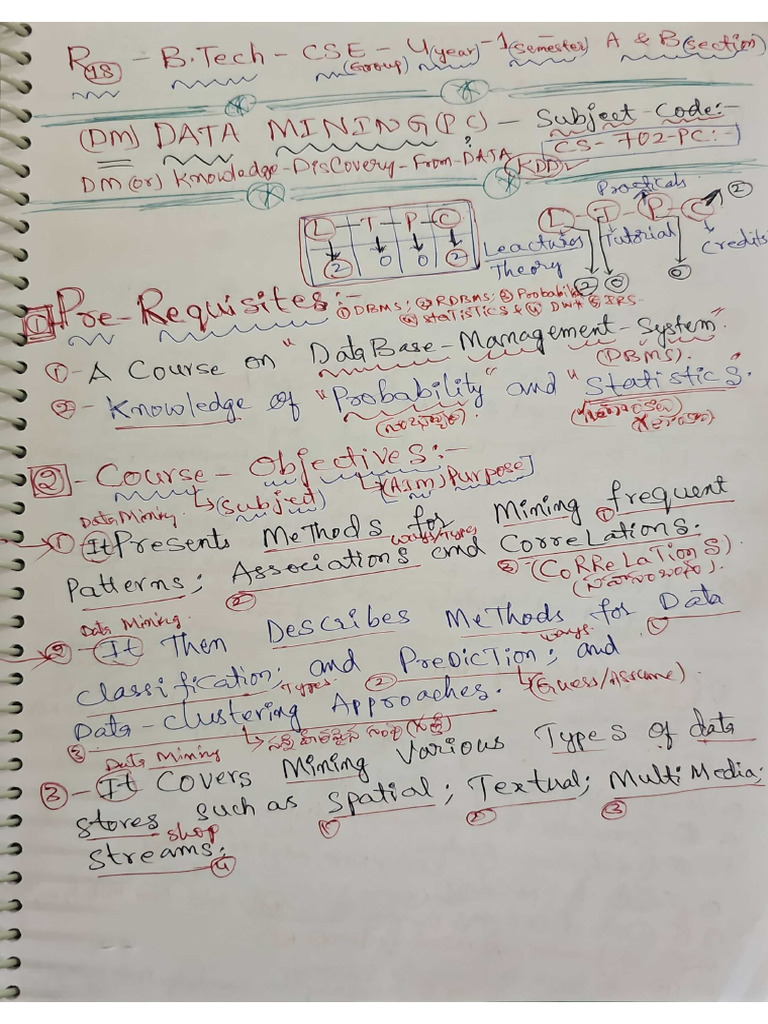 R18 - B.Tech - CSE - 4(year) - 1(semester) A & B(section)
(Group)
(DM) DATA MINING(PC) - Subject Code:-
CS-702-PC:-
DM(or) Knowledge-Discovery-From-DATA (KDD)
Practicals
L T P C
2 0 0 2
L - T - P - C 2
Leactures Tutorial Credits
Theory 2 0 0
1 Pre-Requisites:- ① DBMS; ② RDBMS; ③ Probability
④ STATISTICS & ④ DWH ⑤ IRS.
① - A Course on "DataBase-Management-System"
(DBMS).
② - Knowledge of "Probability" and "Statistics".
2 - Course - Objectives:-
(Subject) (AIM) Purpose]
Data Mining.
① It Presents Methods for Mining frequent ①
ways/types
Patterns; Associations and Correlations.
② ③ (CoRReLaTionS)
Data Mining.
② - It Then Describes Methods for Data ①
ways.
Classification; and PreDicTion; and
Types ② (Guess/Assume)
Data-clustering Approaches.
③
Data Mining
③ - It Covers Mining Various Types of data
stores such as Spatial; Textual; MultiMedia;
shop ① ② ③
Streams; ④